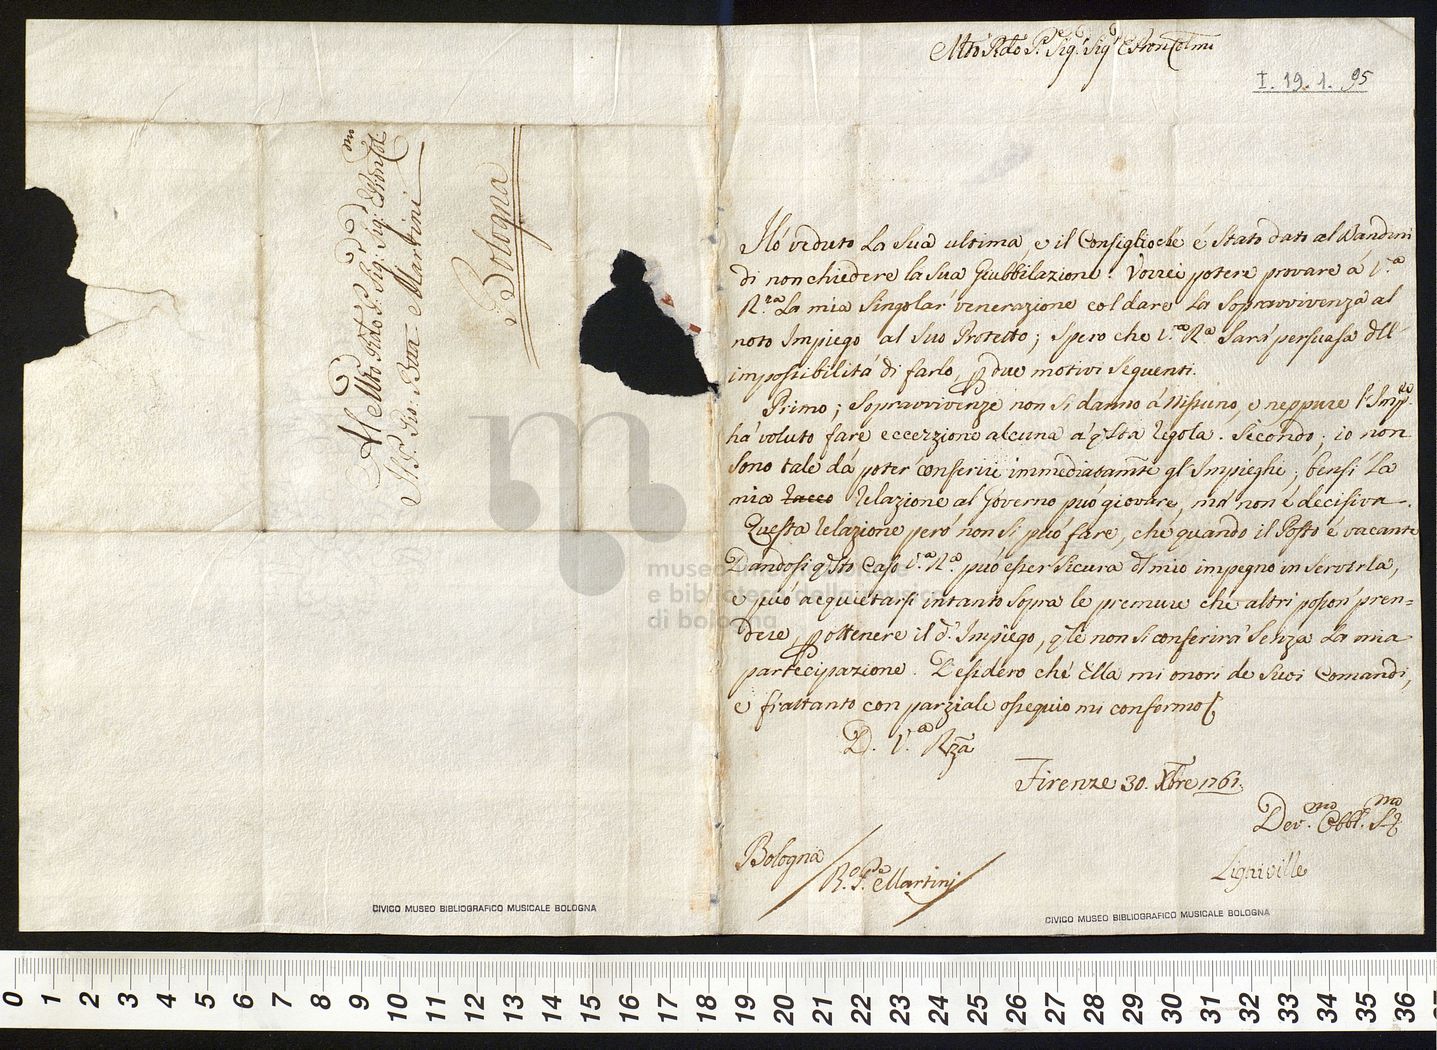 Al Mto Rdo P. Sig: Sig: Pron Col.mo
Il P. Gio: Batta Martini
Bologna
Mto Rdo P.e Sig.r Sig.r Pron Colmo
I. 19. 1. 95
Hò veduto la sua ultima e il Consiglio che é stato dato al Nandini
di non chiedere la sua Giubbilazione. Vorrei potere provare á V.a
R.za la mia singolar venerazione col dare la sopravvivenza al
noto Impiego al suo Protetto; spero che V.a R.a sará persuasa dell'
impossibilitá di farlo, p due motivi seguenti.
Primo; sopravvivenze non si danno á nissuno, e neppure l'Imp.
há voluto fare eccezzione alcuna á qsta regola. Secondo; io non
sono tale dá poter conferire immediatamte gl'Impieghi; bensì la
mia relazione al Governo può giovare, má non é decisiva.
Questa relazione peró non si puó fare, che quando il Posto é vacante
Dandosi qsto caso V.a R.a puó esser sicura del mio impegno in servirla,
e puó acquietarsi intanto sopra le premure che altri posson pren=
dere, p ottenere il d.o Impiego, qle non si conferirà senza la mia
partecipazione. Desidero ché Ella mi onori de suoi Comandi,
e frattanto con parziale ossequio mi confermo
D. V.a Rza
Firenze 30. Xbre 1761.
Dev.mo Obbl.mo
Ligniville
Bologna
R.o P.re Martini
museo internazionale
e biblioteca della musica
di bologna
CIVICO MUSEO BIBLIOGRAFICO MUSICALE BOLOGNA
CIVICO MUSEO BIBLIOGRAFICO MUSICALE BOLOGNA
0 1 2 3 4 5 6 7 8 9 10 11 12 13 14 15 16 17 18 19 20 21 22 23 24 25 26 27 28 29 30 31 32 33 34 35 36